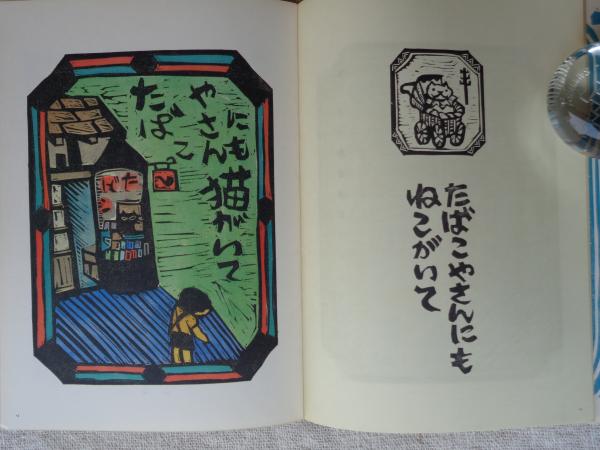 たばこ
やさん
にも
猫がいて
たば
たばこやさんにも
ねこがいて